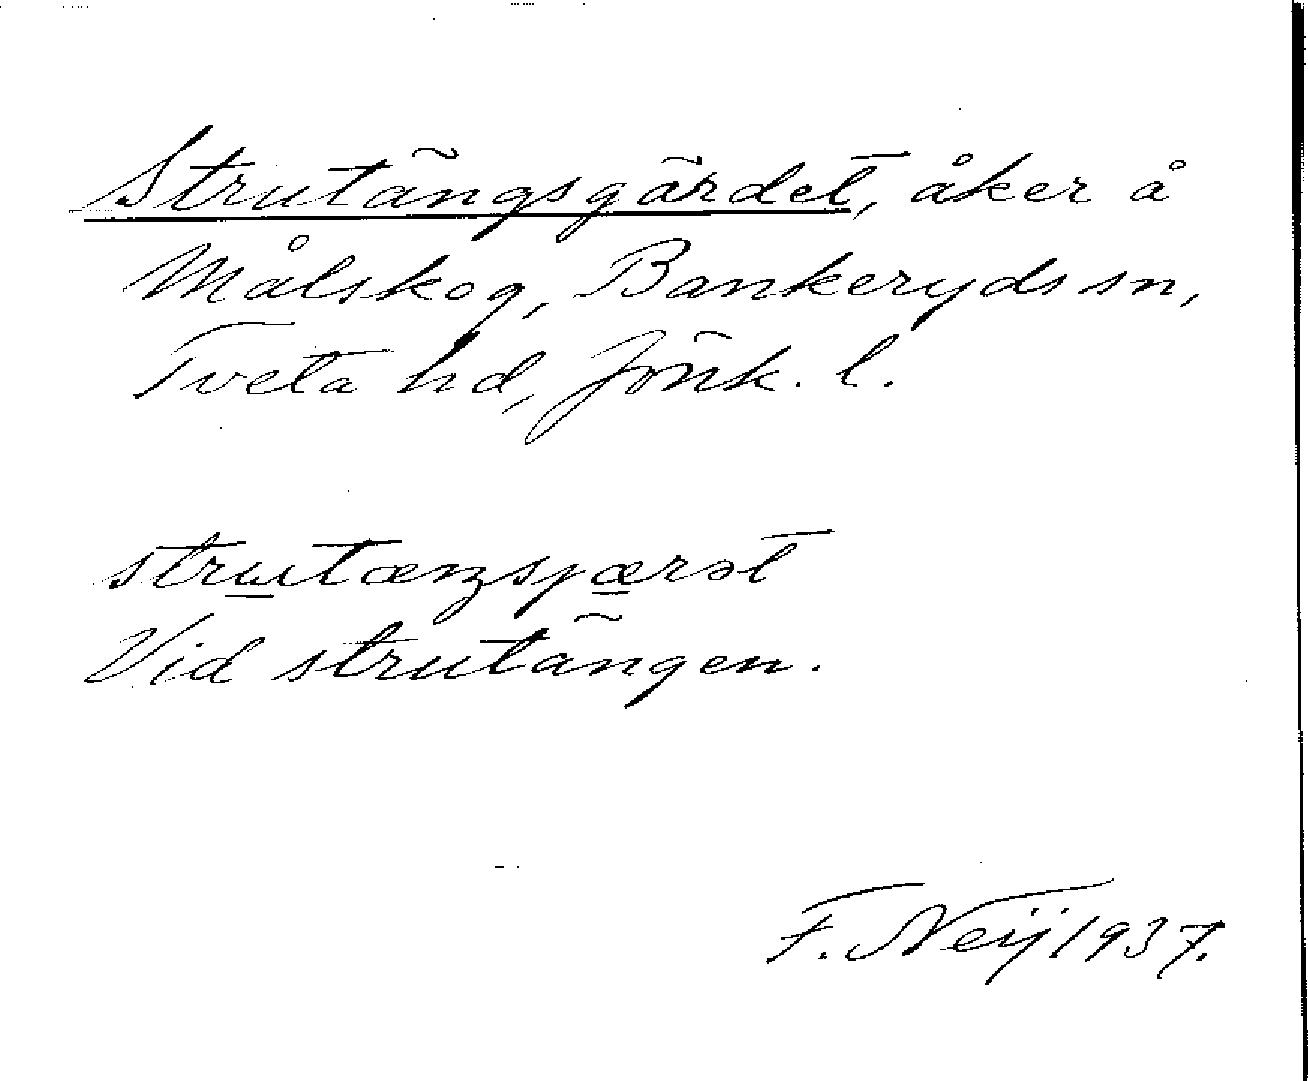 Strutängsgärdet, åker å
Målskog, Bankeryds sn,
Tveta hd, Jönk. l.
strɯtæŋsjærət
Vid strutängen.
F. Neij 1937.